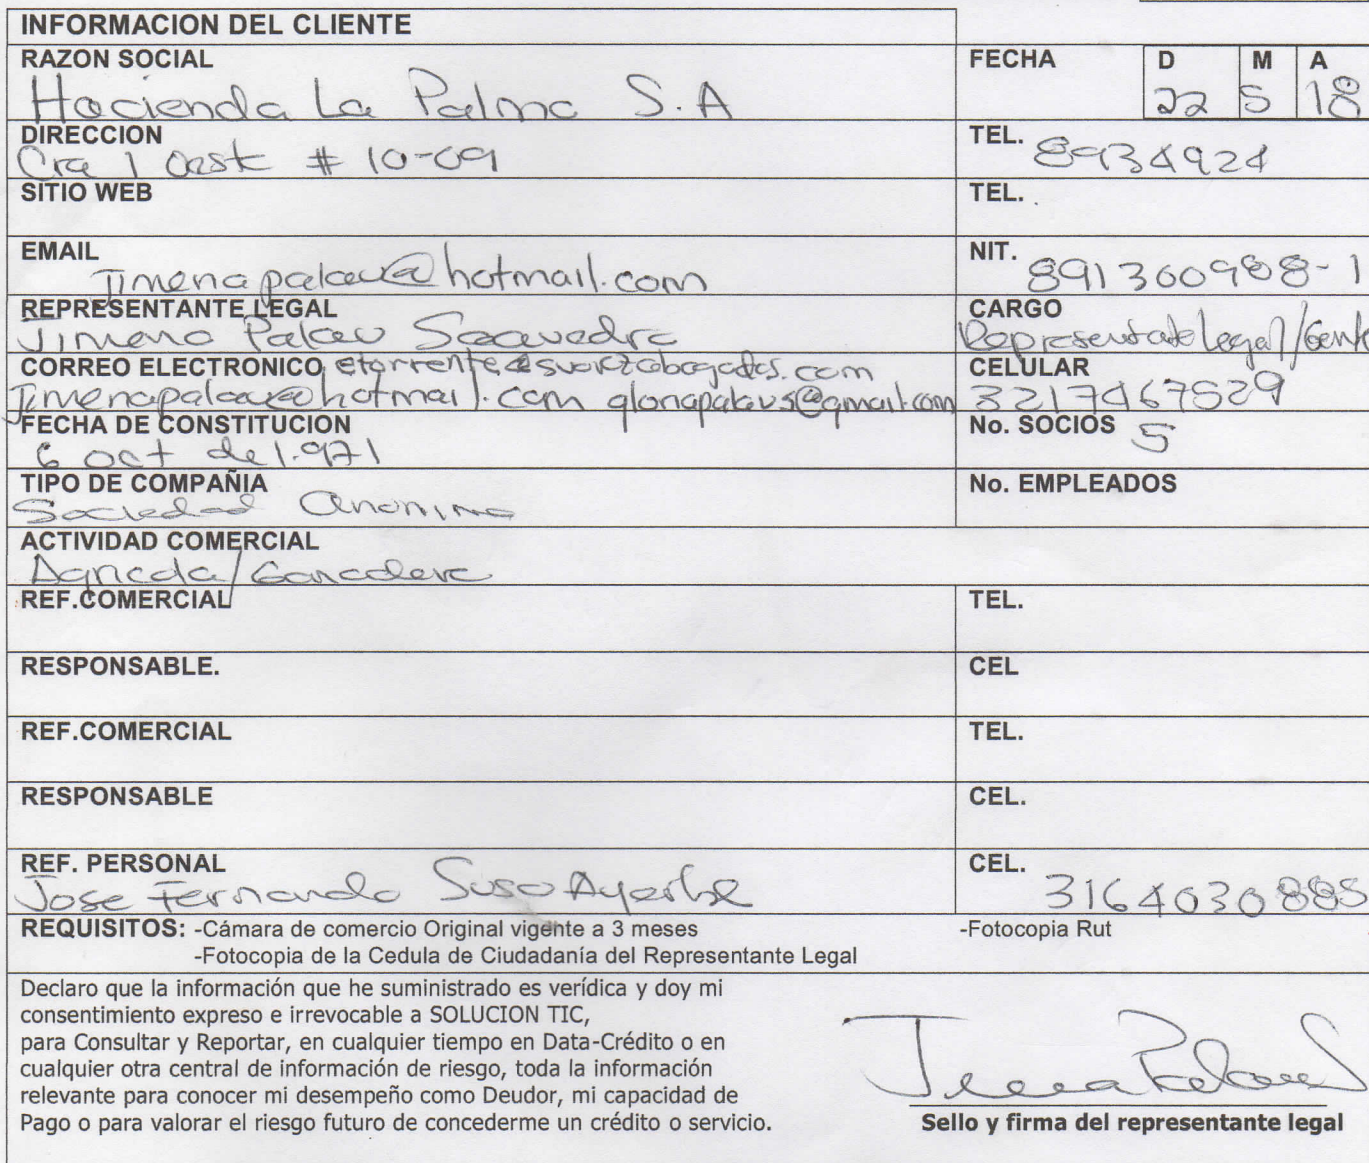 INFORMACION DEL CLIENTE
RAZON SOCIAL
Hacienda La Palma S.A
FECHA D M A
22 5 18
DIRECCION
Cra 1 Oeste # 10-09
TEL. 8934924
SITIO WEB
TEL.
EMAIL
Jimenapalau@hotmail.com
NIT.
891360988-1
REPRESENTANTE LEGAL
Jimena Palau Saavedra
CARGO
Representate Legal/
CORREO ELECTRONICO
Jimenapalau@hotmail.com gloriapalaus@gmail.com
CELULAR
3217467529
FECHA DE CONSTITUCION
6 oct de 1.971
No. SOCIOS 5
TIPO DE COMPAÑIA
Sociedad Anonima
No. EMPLEADOS
ACTIVIDAD COMERCIAL
Agricola/Ganadera
REF.COMERCIAL
TEL.
RESPONSABLE.
CEL
REF.COMERCIAL
TEL.
RESPONSABLE
CEL.
REF. PERSONAL
Jose Fernando Suso Ayerbe
CEL.
3164030885
REQUISITOS: -Cámara de comercio Original vigente a 3 meses -Fotocopia Rut
-Fotocopia de la Cedula de Ciudadanía del Representante Legal
Declaro que la información que he suministrado es verídica y doy mi
consentimiento expreso e irrevocable a SOLUCION TIC,
para Consultar y Reportar, en cualquier tiempo en Data-Crédito o en
cualquier otra central de información de riesgo, toda la información
relevante para conocer mi desempeño como Deudor, mi capacidad de
Pago o para valorar el riesgo futuro de concederme un crédito o servicio.
Sello y firma del representante legal